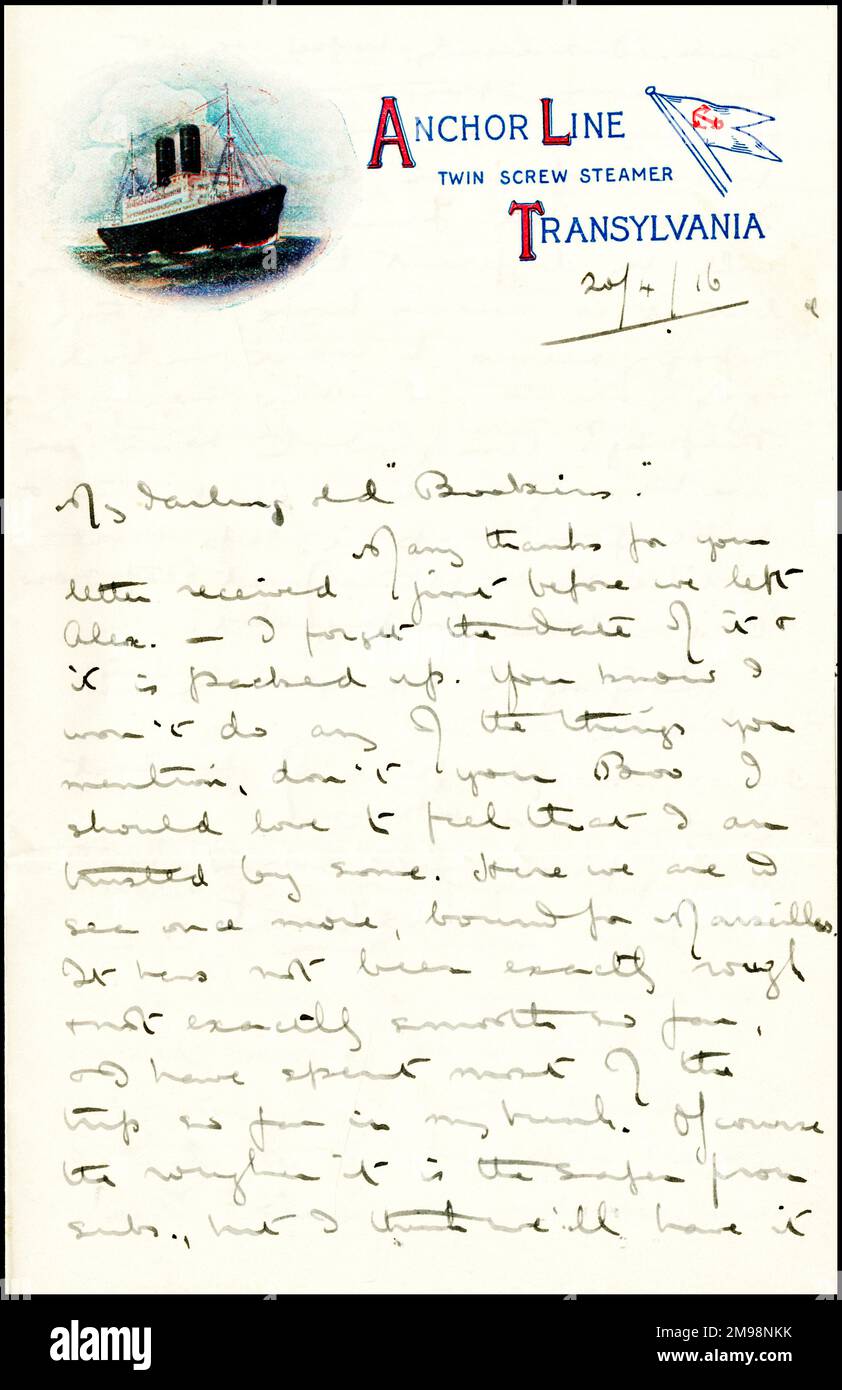 ANCHOR LINE
TWIN SCREW STEAMER
TRANSYLVANIA
20/4/16
My darling old "Bookins".
Many thanks for your
letter received just before we left
Alex. — I forget the date of it &
it is packed up. You know I
won't do any of the things you
mention, don't you Boo I
should love to feel that I am
trusted by some. Here we are at
sea once more, bound for Marseilles.
It has not been exactly rough
& not exactly smooth so far,
& I have spent most of the
trip so far in my bunk. Of course
the rougher it is the safer from
subs., but I think we'll have it
alamy
Image ID: 2M98NKK
www.alamy.com